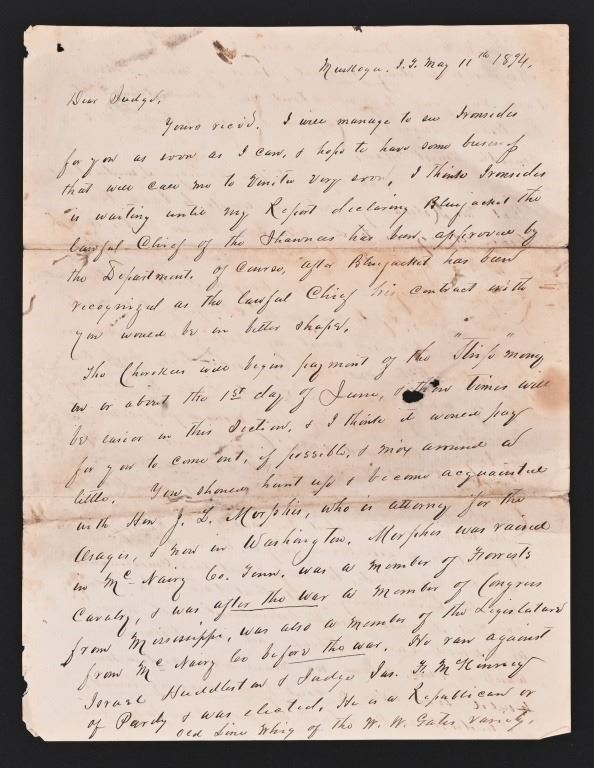 Muskogee, I.T. May 11th 1894.
Dear Judge,
Yours recvd. I will manage to see Ironsides
for you as soon as I can, & hope to have some business
that will call me to Vinita very soon, I think Ironsides
is waiting until my Report declaring Bluejacket the
lawful Chief of the Shawnees has been approved by
the Department. Of course, after Bluejacket has been
recognized as the lawful Chief his contract with
you would be in better shape.
The Cherokees will begin payment of the "Strip" money
on or about the 1st day of June, & then times will
be easier in this Section, & I think it would pay
for you to come out, if possible, & mix around a
little. You should hunt up & become acquainted
with Hon J. L. Morphis, who is attorney for the
Osages, & now in Washington. Morphis was raised
in McNairy Co. Tenn. was a member of Forrests
Cavalry, & was after the war a member of Congress
from Mississippi, was also a member of the Legislature
from McNairy Co before the war. He ran against
Israel Huddleston & Judge Jas. F. McKinney
of Purdy & was elected. He is a Republican or
old Line Whig of the W. W. Gates variety.